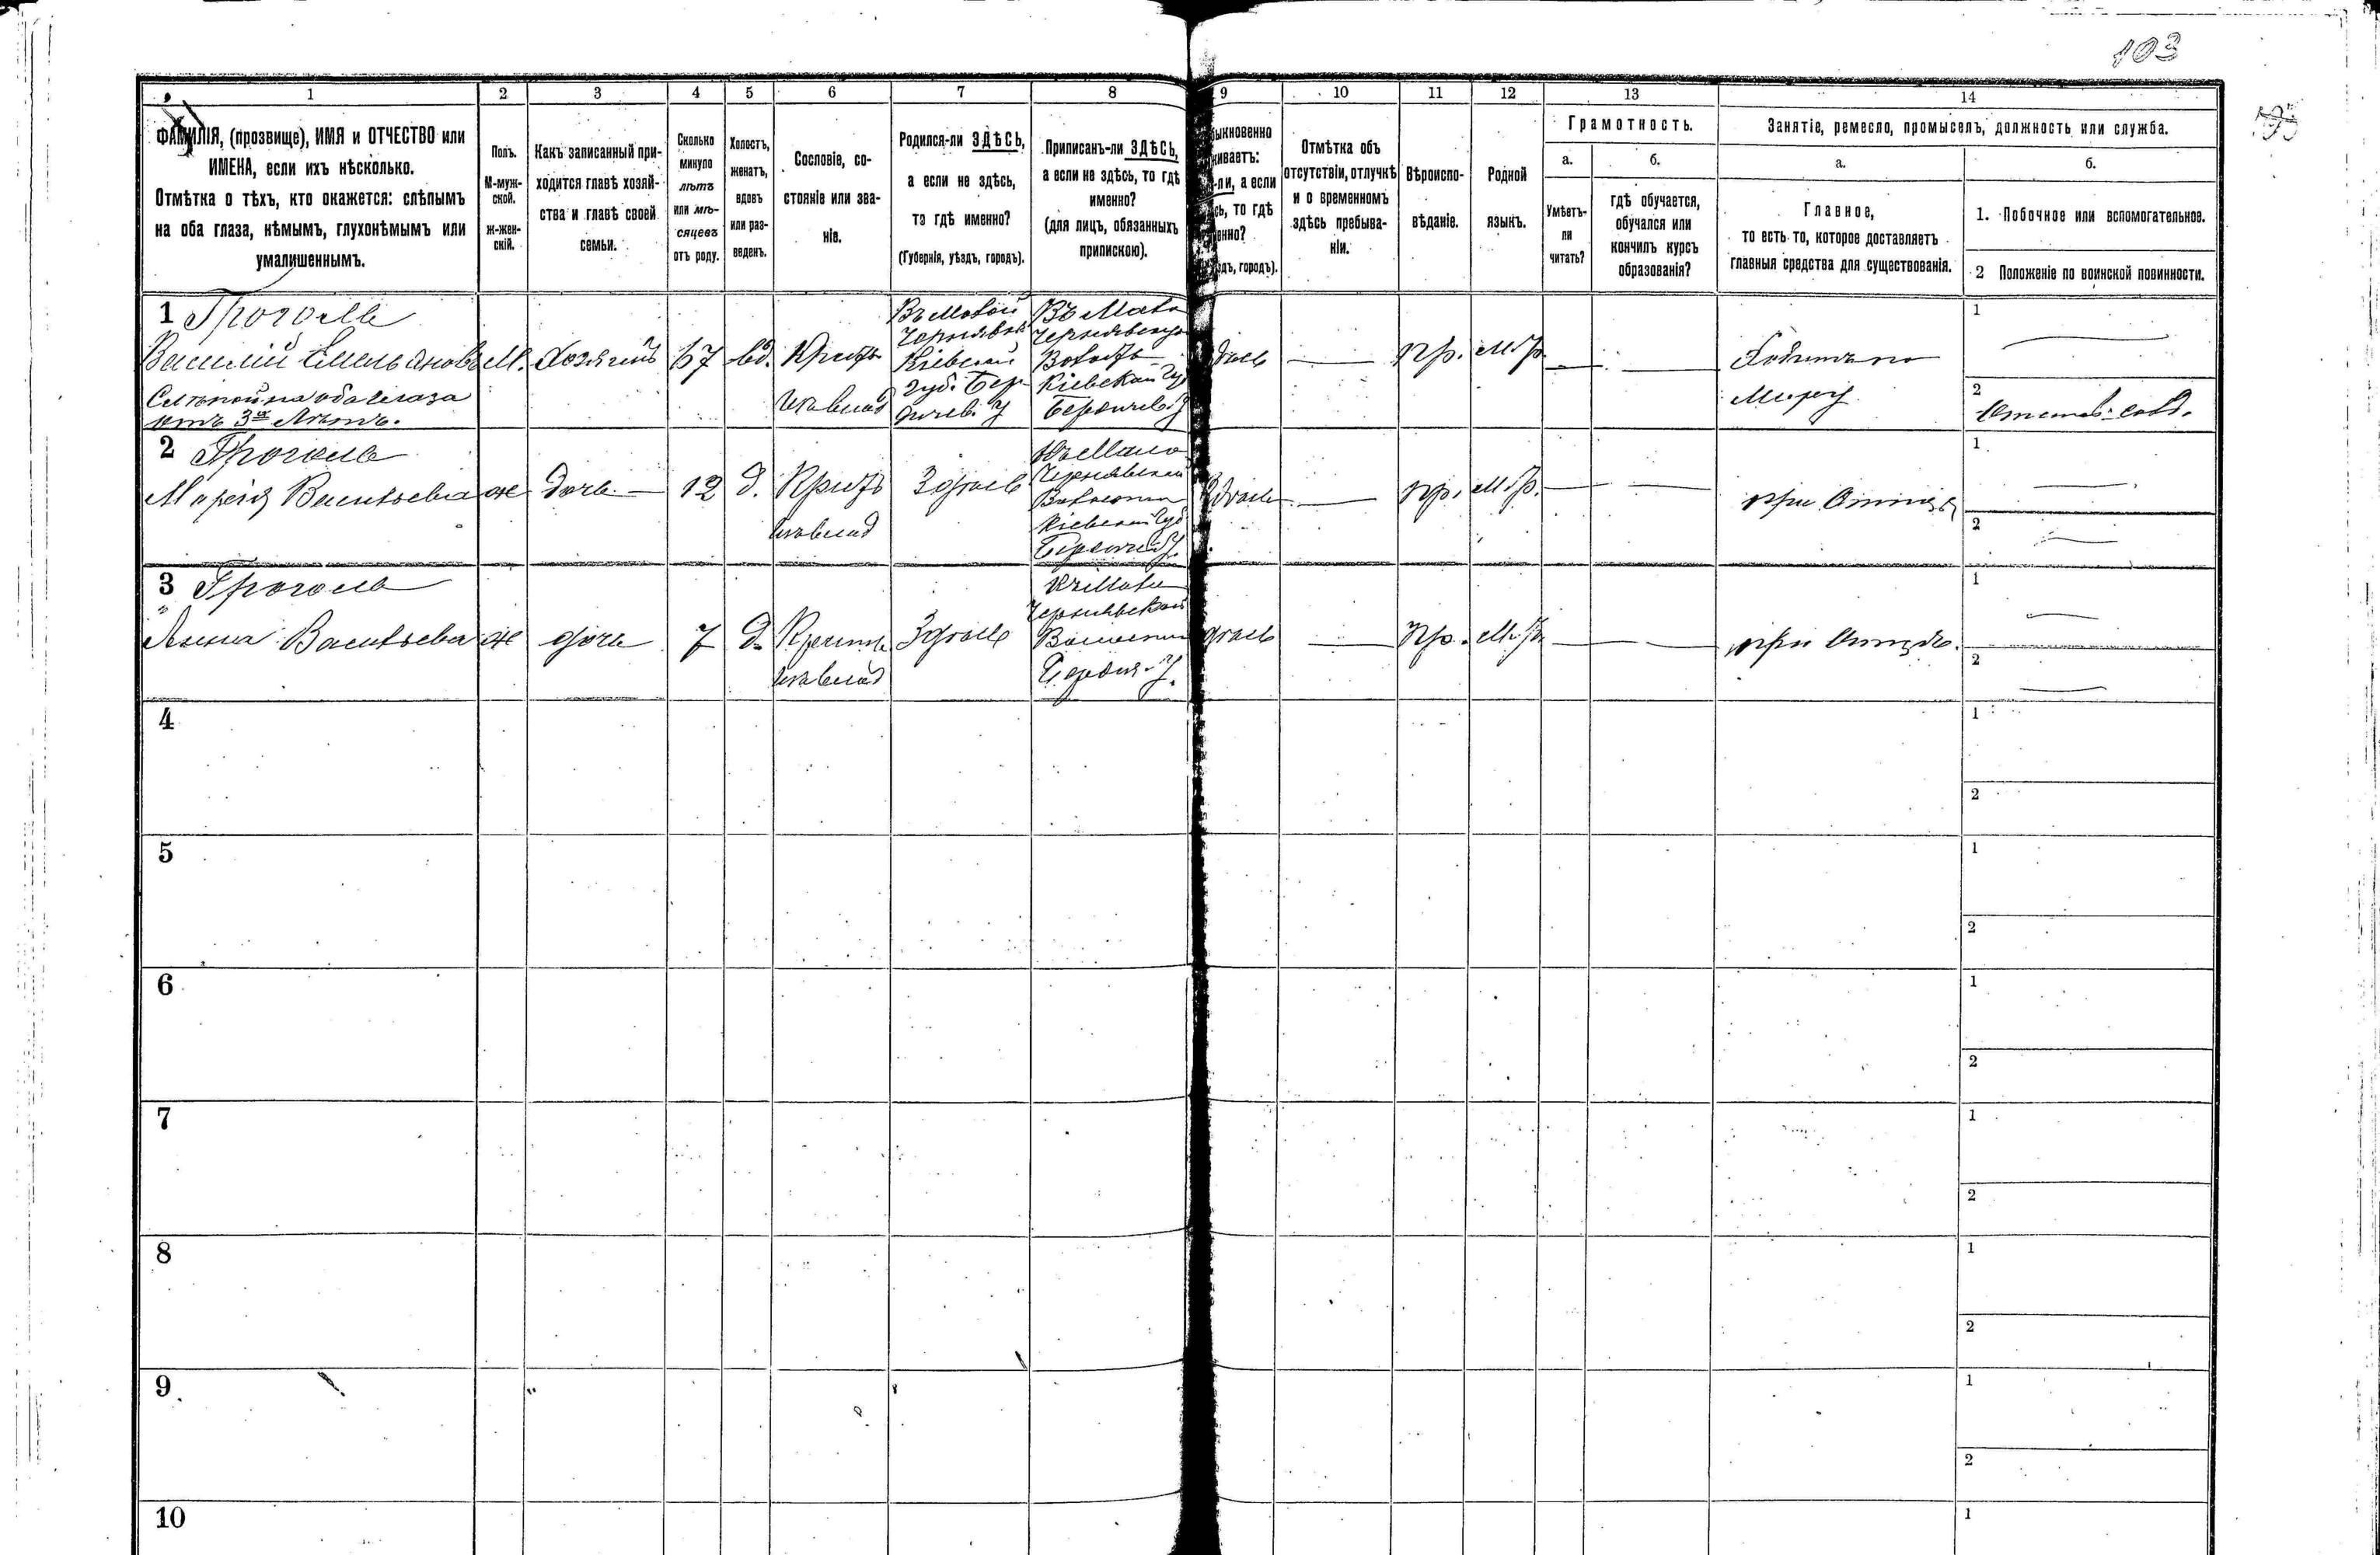 103
195
1
2
3
4
5
6
7
8
9
10
11
12
13
14
ФАМИЛІЯ, (прозвище), ИМЯ и ОТЧЕСТВО или
ИМЕНА, если ихъ нѣсколько.
Отмѣтка о тѣхъ, кто окажется: слѣпымъ
на оба глаза, нѣмымъ, глухонѣмымъ или
умалишеннымъ.
Полъ.
М-муж-
ской.
ж-жен-
скій.
Какъ записанный при-
ходится главѣ хозяй-
ства и главѣ своей
семьи.
Сколько
минуло
лѣтъ
или мѣ-
сяцевъ
отъ роду.
Холостъ,
женатъ,
вдовъ
или раз-
веденъ.
Сословіе, со-
стояніе или зва-
ніе.
Родился-ли ЗДѢСЬ,
а если не здѣсь,
то гдѣ именно?
(Губернія, уѣздъ, городъ).
Приписанъ-ли ЗДѢСЬ,
а если не здѣсь, то гдѣ
именно?
(для лицъ, обязанныхъ
припискою).
ыкновенно
живаетъ:
-ли, а если
сь, то гдѣ
енно?
здъ, городъ).
Отмѣтка объ
отсутствіи, отлучкѣ
и о временномъ
здѣсь пребыва-
ніи.
Вѣроиспо-
вѣданіе.
Родной
языкъ.
Грамотность.
а.
Умѣетъ-
ли
читать?
б.
гдѣ обучается,
обучался или
кончилъ курсъ
образованія?
Занятіе, ремесло, промыселъ, должность или служба.
а.
Главное,
то есть то, которое доставляетъ
главныя средства для существованія.
б.
1. Побочное или вспомогательное.
2 Положеніе по воинской повинности.
1 Гроголь
Василій Емельяновъ
Слѣпой на оба глаза
отъ 3х лѣтъ.
М.
Хозяинъ
67
вд.
Крест
Кіевской
Губ. Бер
дичев. У
Чернявской
Волость
Кіевской Гу
Бердичев. У
здѣсь
Пр.
М.р.
Ходитъ по
Миру
1
2
Отстав. солд.
2 Гроголь
Марія Васильева
ж
дочь
12
д.
Крест
Здѣсь
Чернявской
Волости
Кіевской Губ
Бердичев У.
Здѣсь
Пр.
М.р.
при Отцѣ
1
2
3 Гроголь
Анна Васильева
ж
дочь
7
д.
Крест
Здѣсь
Чернявской
Волости
Бердич. У.
здѣсь
Пр.
М.р.
при Отцѣ.
1
2
4
1
2
5
1
2
6
1
2
7
1
2
8
1
2
9
1
2
10
1